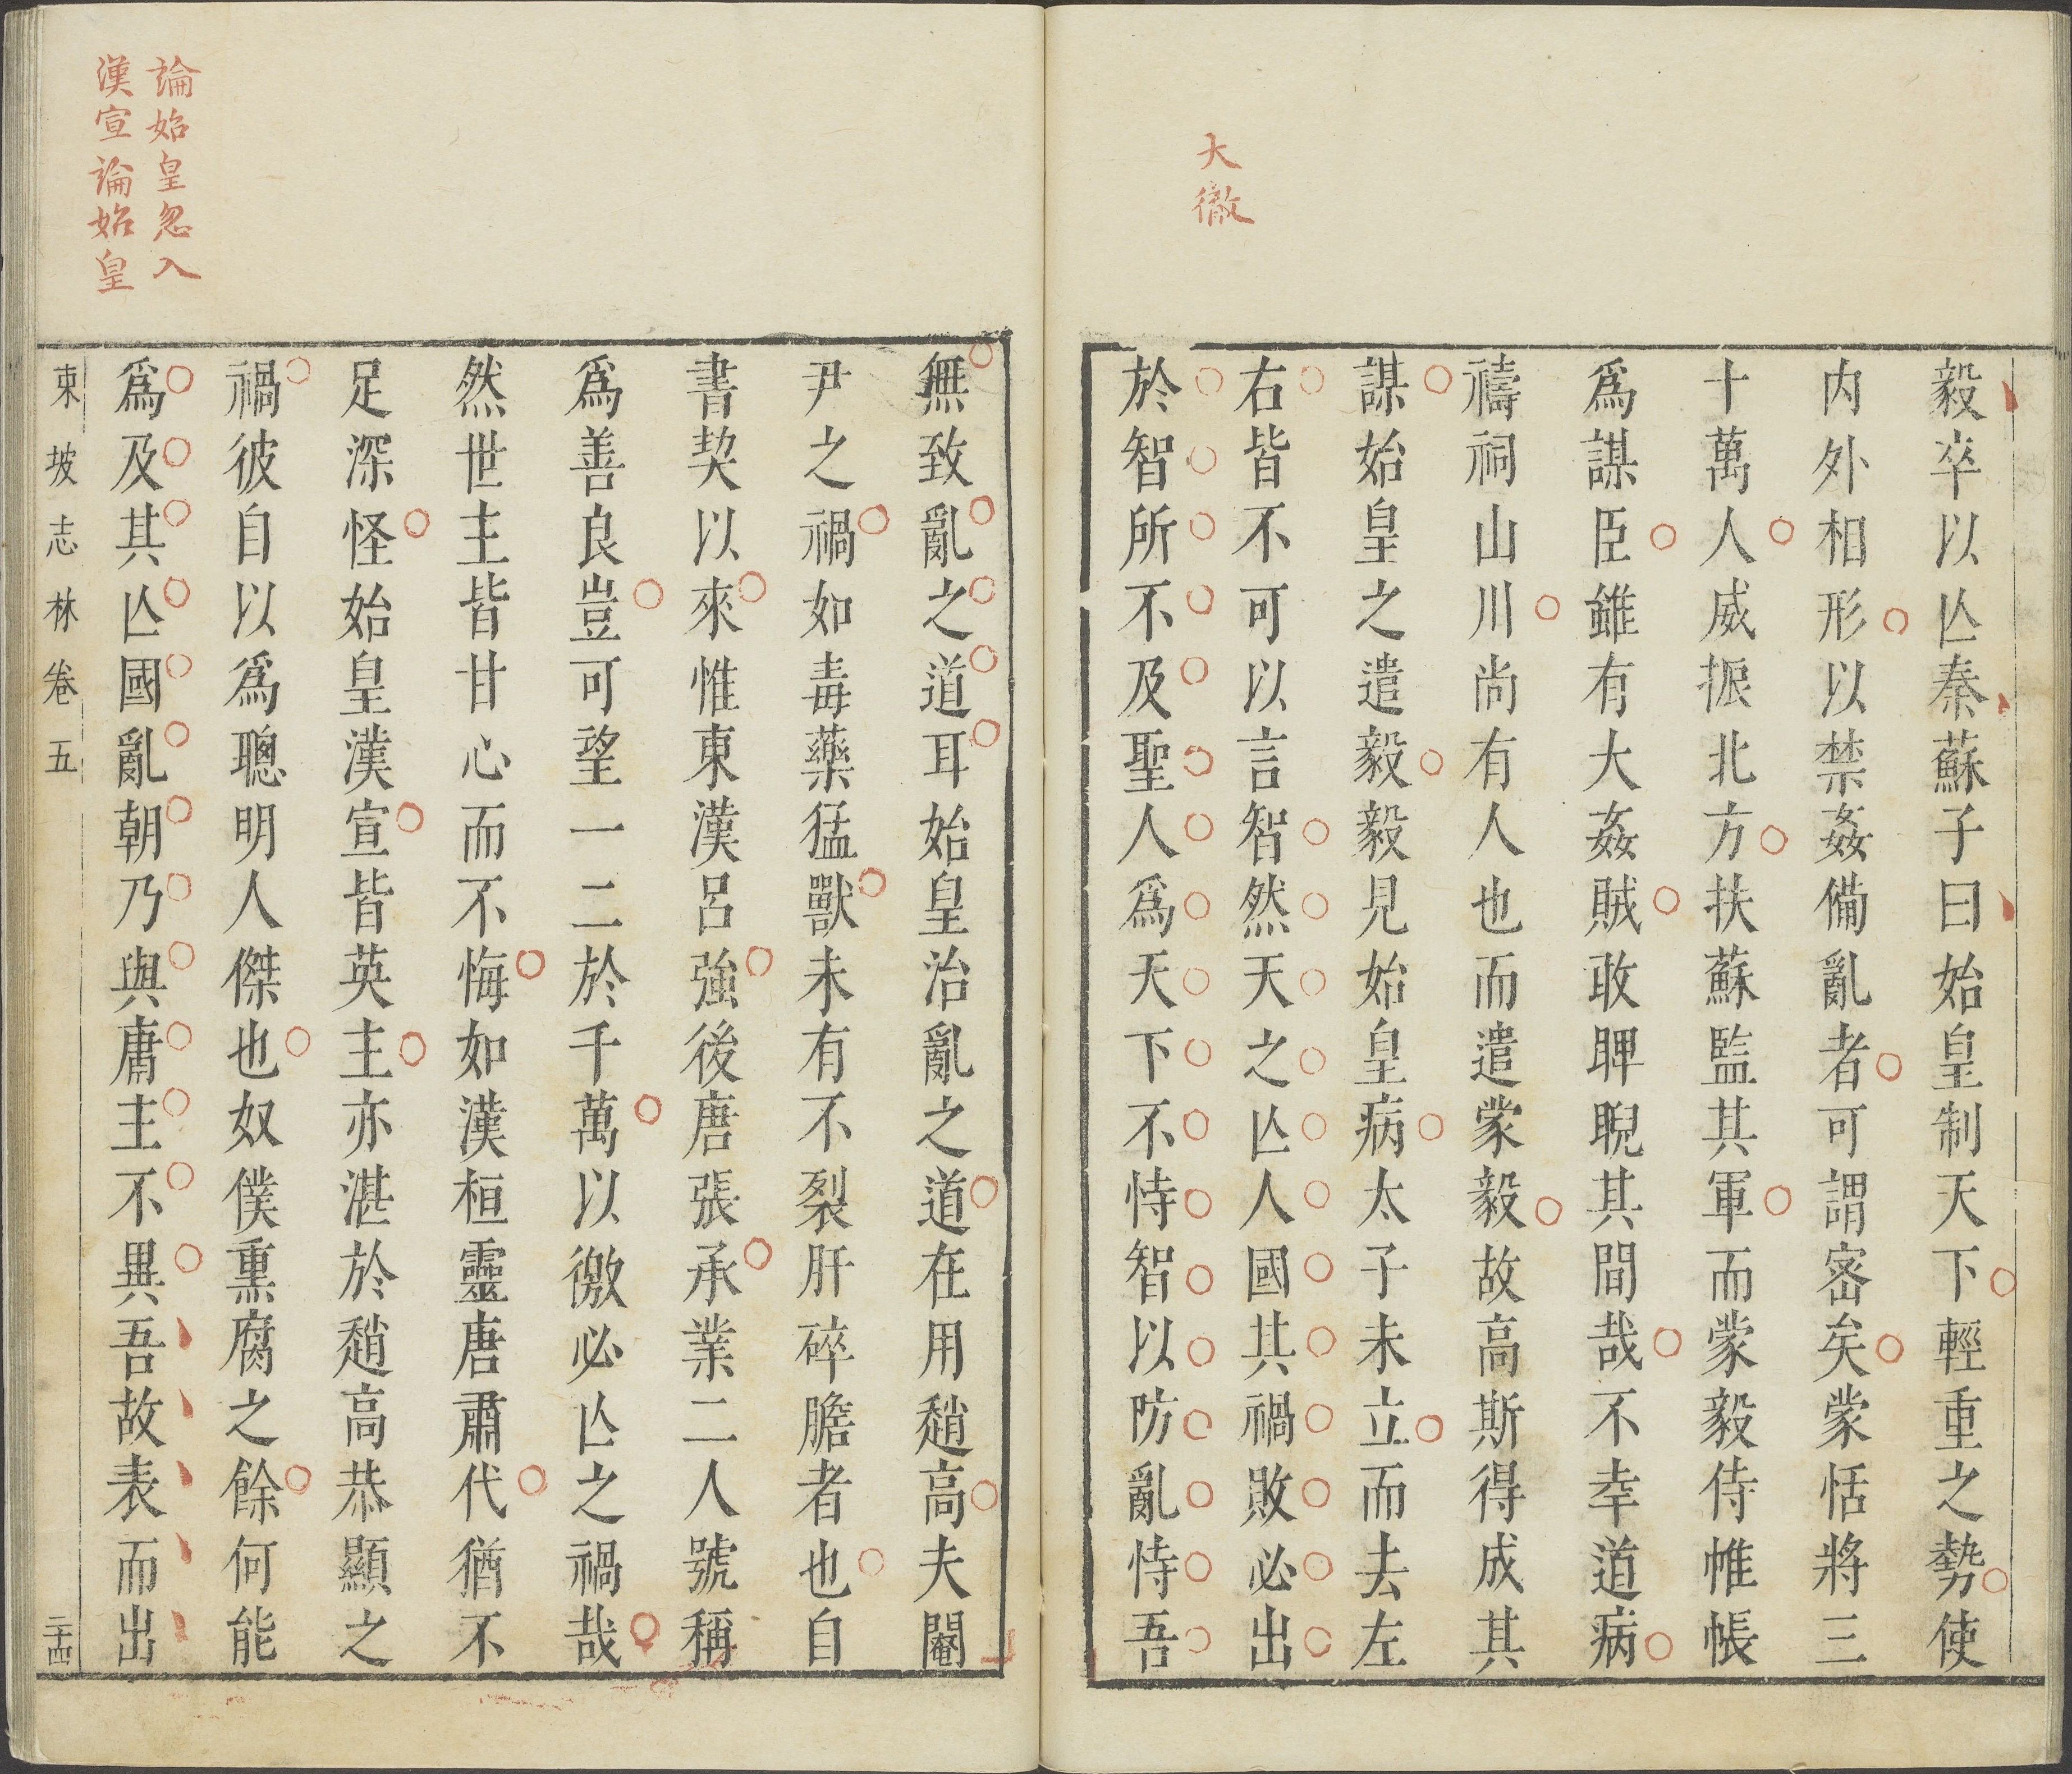 大徹
毅卒以亾秦蘇子曰始皇制天下輕重之勢使
内外相形以禁姦備亂者可謂密矣蒙恬將三
十萬人威振北方扶蘇監其軍而蒙毅侍帷帳
爲謀臣雖有大姦賊敢睥睨其間哉不幸道病
禱祠山川尚有人也而遣蒙毅故高斯得成其
謀始皇之遣毅毅見始皇病太子未立而去左
右皆不可以言智然天之亾人國其禍敗必出
於智所不及聖人爲天下不恃智以防亂恃吾
論始皇忽入
漢宣論始皇
無致亂之道耳始皇治亂之道在用趙高夫閹
尹之禍如毒藥猛獸未有不裂肝碎膽者也自
書契以來惟東漢呂強後唐張承業二人號稱
爲善良豈可望一二於千萬以徼必亾之禍哉
然世主皆甘心而不悔如漢桓靈唐肅代猶不
足深怪始皇漢宣皆英主亦湛於趙高恭顯之
禍彼自以爲聰明人傑也奴僕熏腐之餘何能
爲及其亾國亂朝乃與庸主不異吾故表而出
東坡志林卷五
二十四